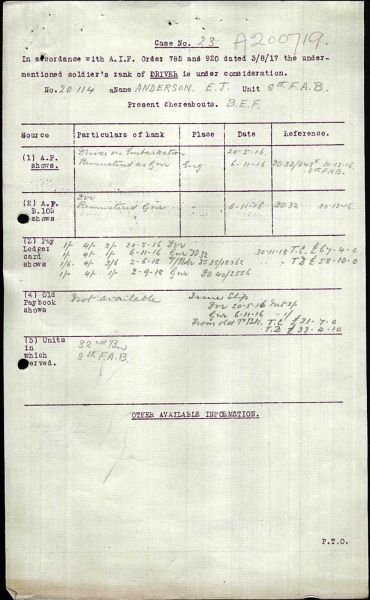 Case No. 23 A200719.
In accordance with A.I.F. Order 785 and 920 dated 3/8/17 the under-
mentioned soldier's rank of DRIVER is under consideration.
No. 20114 Name ANDERSON. E.J. Unit 8th F.A.B.
Present Whereabouts. B.E.F.
Source Particulars of Rank Place Date Reference.
(1) A.F. shows. Driver on Embarkation 20-5-16.
Remustered as Gnr Eng 6-11-16 20-12-16.
8th F.A.B.
(2) A.F. B.103 shows Dvr
Remustered Gnr 6-11-16 DO32 20-12-16.
(3) Pay Ledger card shows 1/- 4/- 2/- 20-5-16 Dvr
1/- 4/- 1/- 6-11-16 Gnr DO32 30-11-18 T.C. £67-4-0
1/6 4/- 2-6-18 T/Bdr £58-10-0
1/- 4/- 1/- 2-9-18 Gnr DO40/2556
(4) Old Paybook shows Not available Issue Slip
Dvr 20-5-16
Gnr 6-11-16
From old T.C. £21-7-0
T.D. £33-4-10
(5) Units in which served. 32nd
8th F.A.B.
OTHER AVAILABLE INFORMATION.
P.T.O.